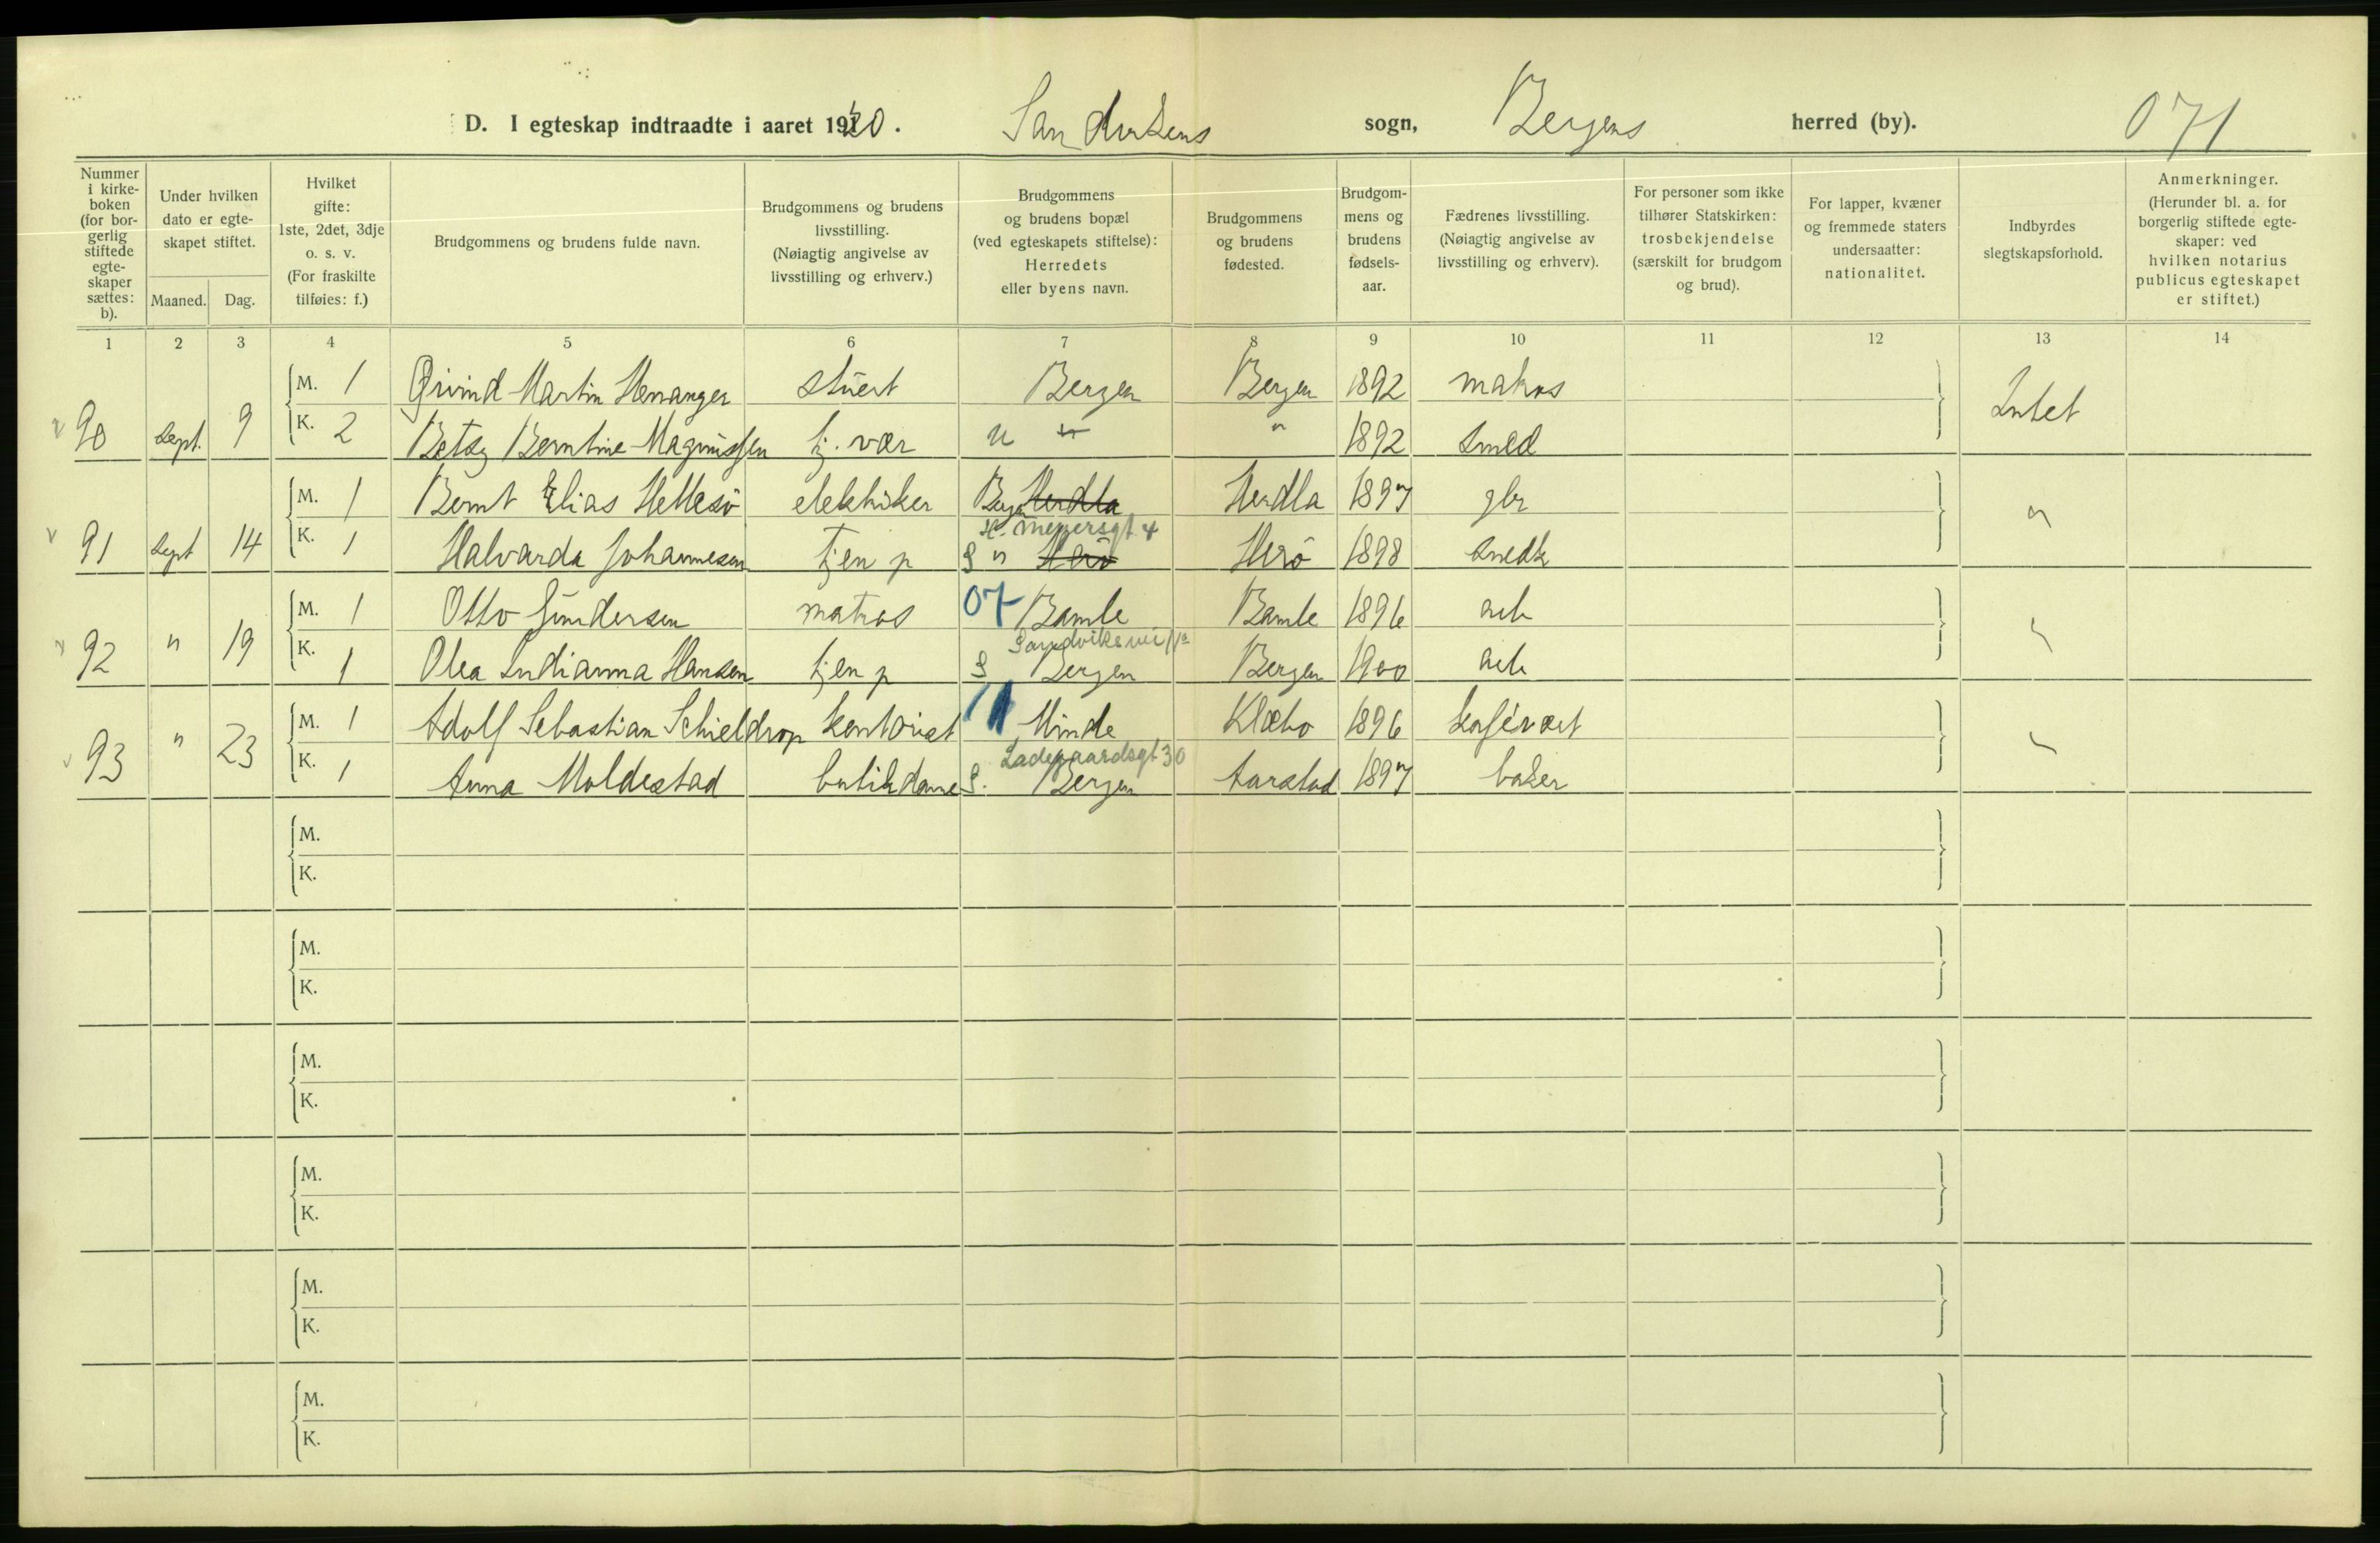 D. I egteskap indtraadte i aaret 1920. Sandvikens sogn, Bergens herred (by). 071
Nummer i kirkeboken (for borgerlig stiftede egteskaper sættes: b).
Under hvilken dato er egteskapet stiftet.
Maaned. Dag.
Hvilket gifte: 1ste, 2det, 3dje o. s. v. (For fraskilte tilføies: f.)
Brudgommens og brudens fulde navn.
Brudgommens og brudens livsstilling. (Nøiagtig angivelse av livsstilling og erhverv.)
Brudgommens og brudens bopæl (ved egteskapets stiftelse): Herredets eller byens navn.
Brudgommens og brudens fødested.
Brudgommens og brudens fødselsaar.
Fædrenes livsstilling. (Nøiagtig angivelse av livsstilling og erhverv).
For personer som ikke tilhører Statskirken: trosbekjendelse (særskilt for brudgom og brud).
For lapper, kvæner og fremmede staters undersaatter: nationalitet.
Indbyrdes slegtskapsforhold.
Anmerkninger. (Herunder bl. a. for borgerlig stiftede egteskaper: ved hvilken notarius publicus egteskapet er stiftet.)
1 2 3 4 5 6 7 8 9 10 11 12 13 14
M. 1 Øivind Martin Henanger stuert Bergen Bergen 1892 matros
90 Sept. 9 Intet
K. 2 Betzy Berntine Magnussen tj. vær " " 1892 Smed
M. 1 Bernt Elias Hellesö elektriker Bergen Herdla Herdla 1897 gbr
91 Sept 14 "
H. Meyersgt. 4
K. 1 Halvarda Johannesen tjen p S " Herö Herö 1898 Snedk
M. 1 Otto Gundersen matros 07 Bamle Bamle 1896 arb
92 " 19 "
Sandviksvei 11a
K. 1 Olea Indianna Hansen tjen p S Bergen Bergen 1900 arb
M. 1 Adolf Sebastian Schieldrop kontorist Minde Klæbo 1896 kafévært
93 " 23 "
Ladegaardsgt 30
K. 1 Anna Moldestad butikdame S. Bergen Aarstad 1897 baker
M.
K.
M.
K.
M.
K.
M.
K.
M.
K.
M.
K.